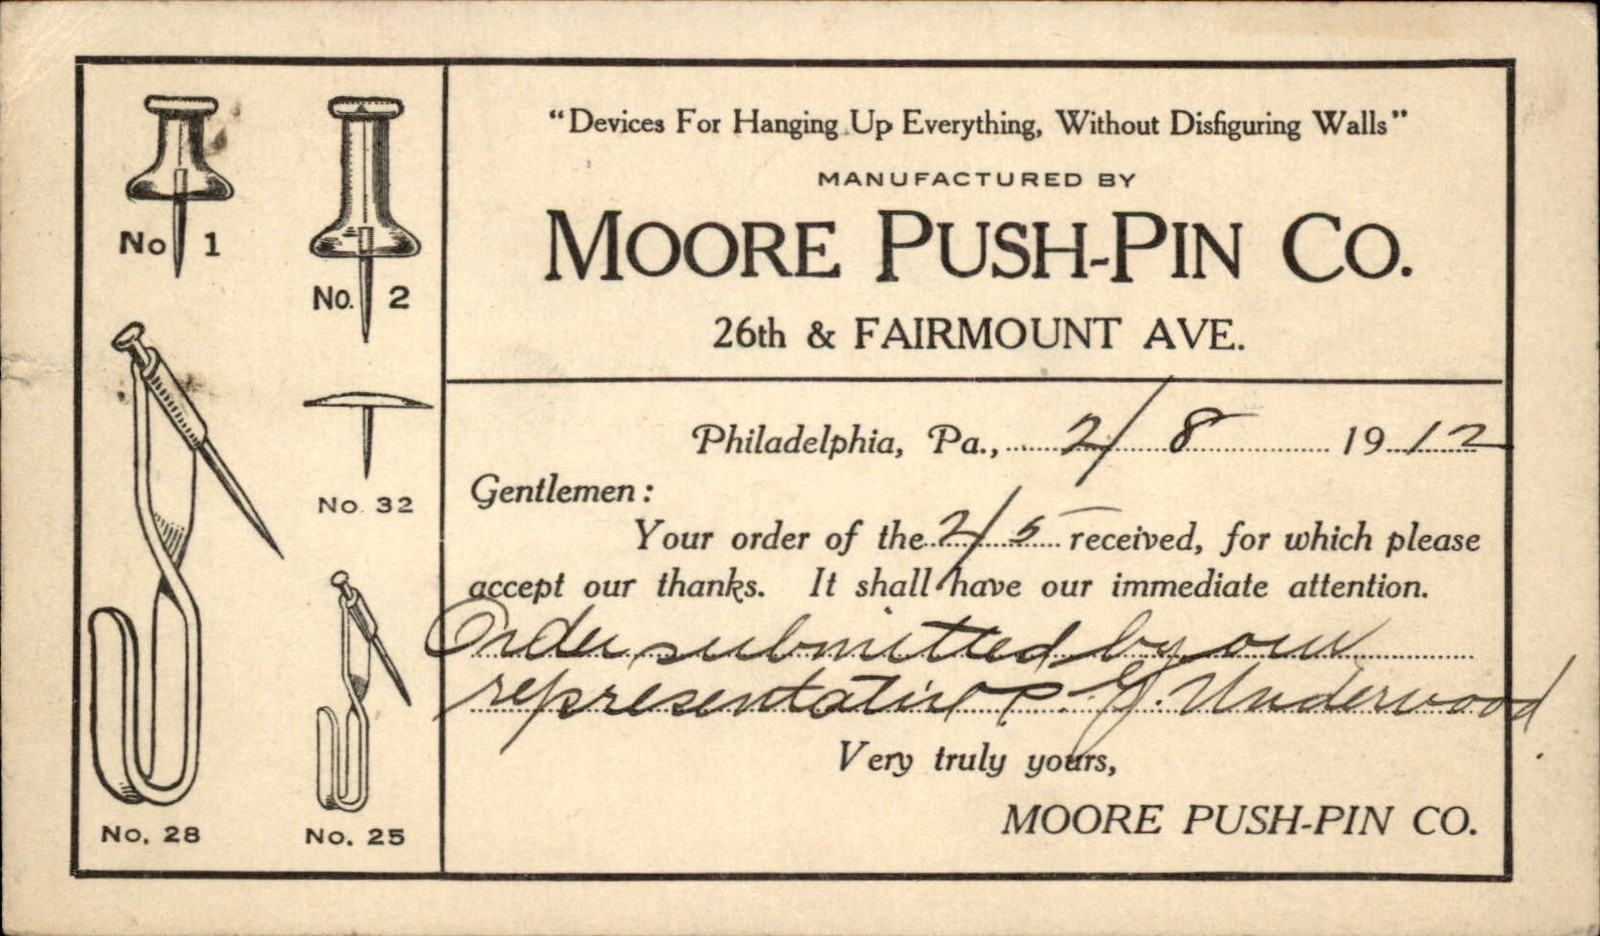 "Devices For Hanging Up Everything, Without Disfiguring Walls"
MANUFACTURED BY
MOORE PUSH-PIN CO.
26th & FAIRMOUNT AVE.
No 1
No. 2
No. 32
No. 28
No. 25
Philadelphia, Pa., 2/8 1912
Gentlemen:
Your order of the 2/5 received, for which please
accept our thanks. It shall have our immediate attention.
Order submitted by our
representative P. G. Underwood.
Very truly yours,
MOORE PUSH-PIN CO.